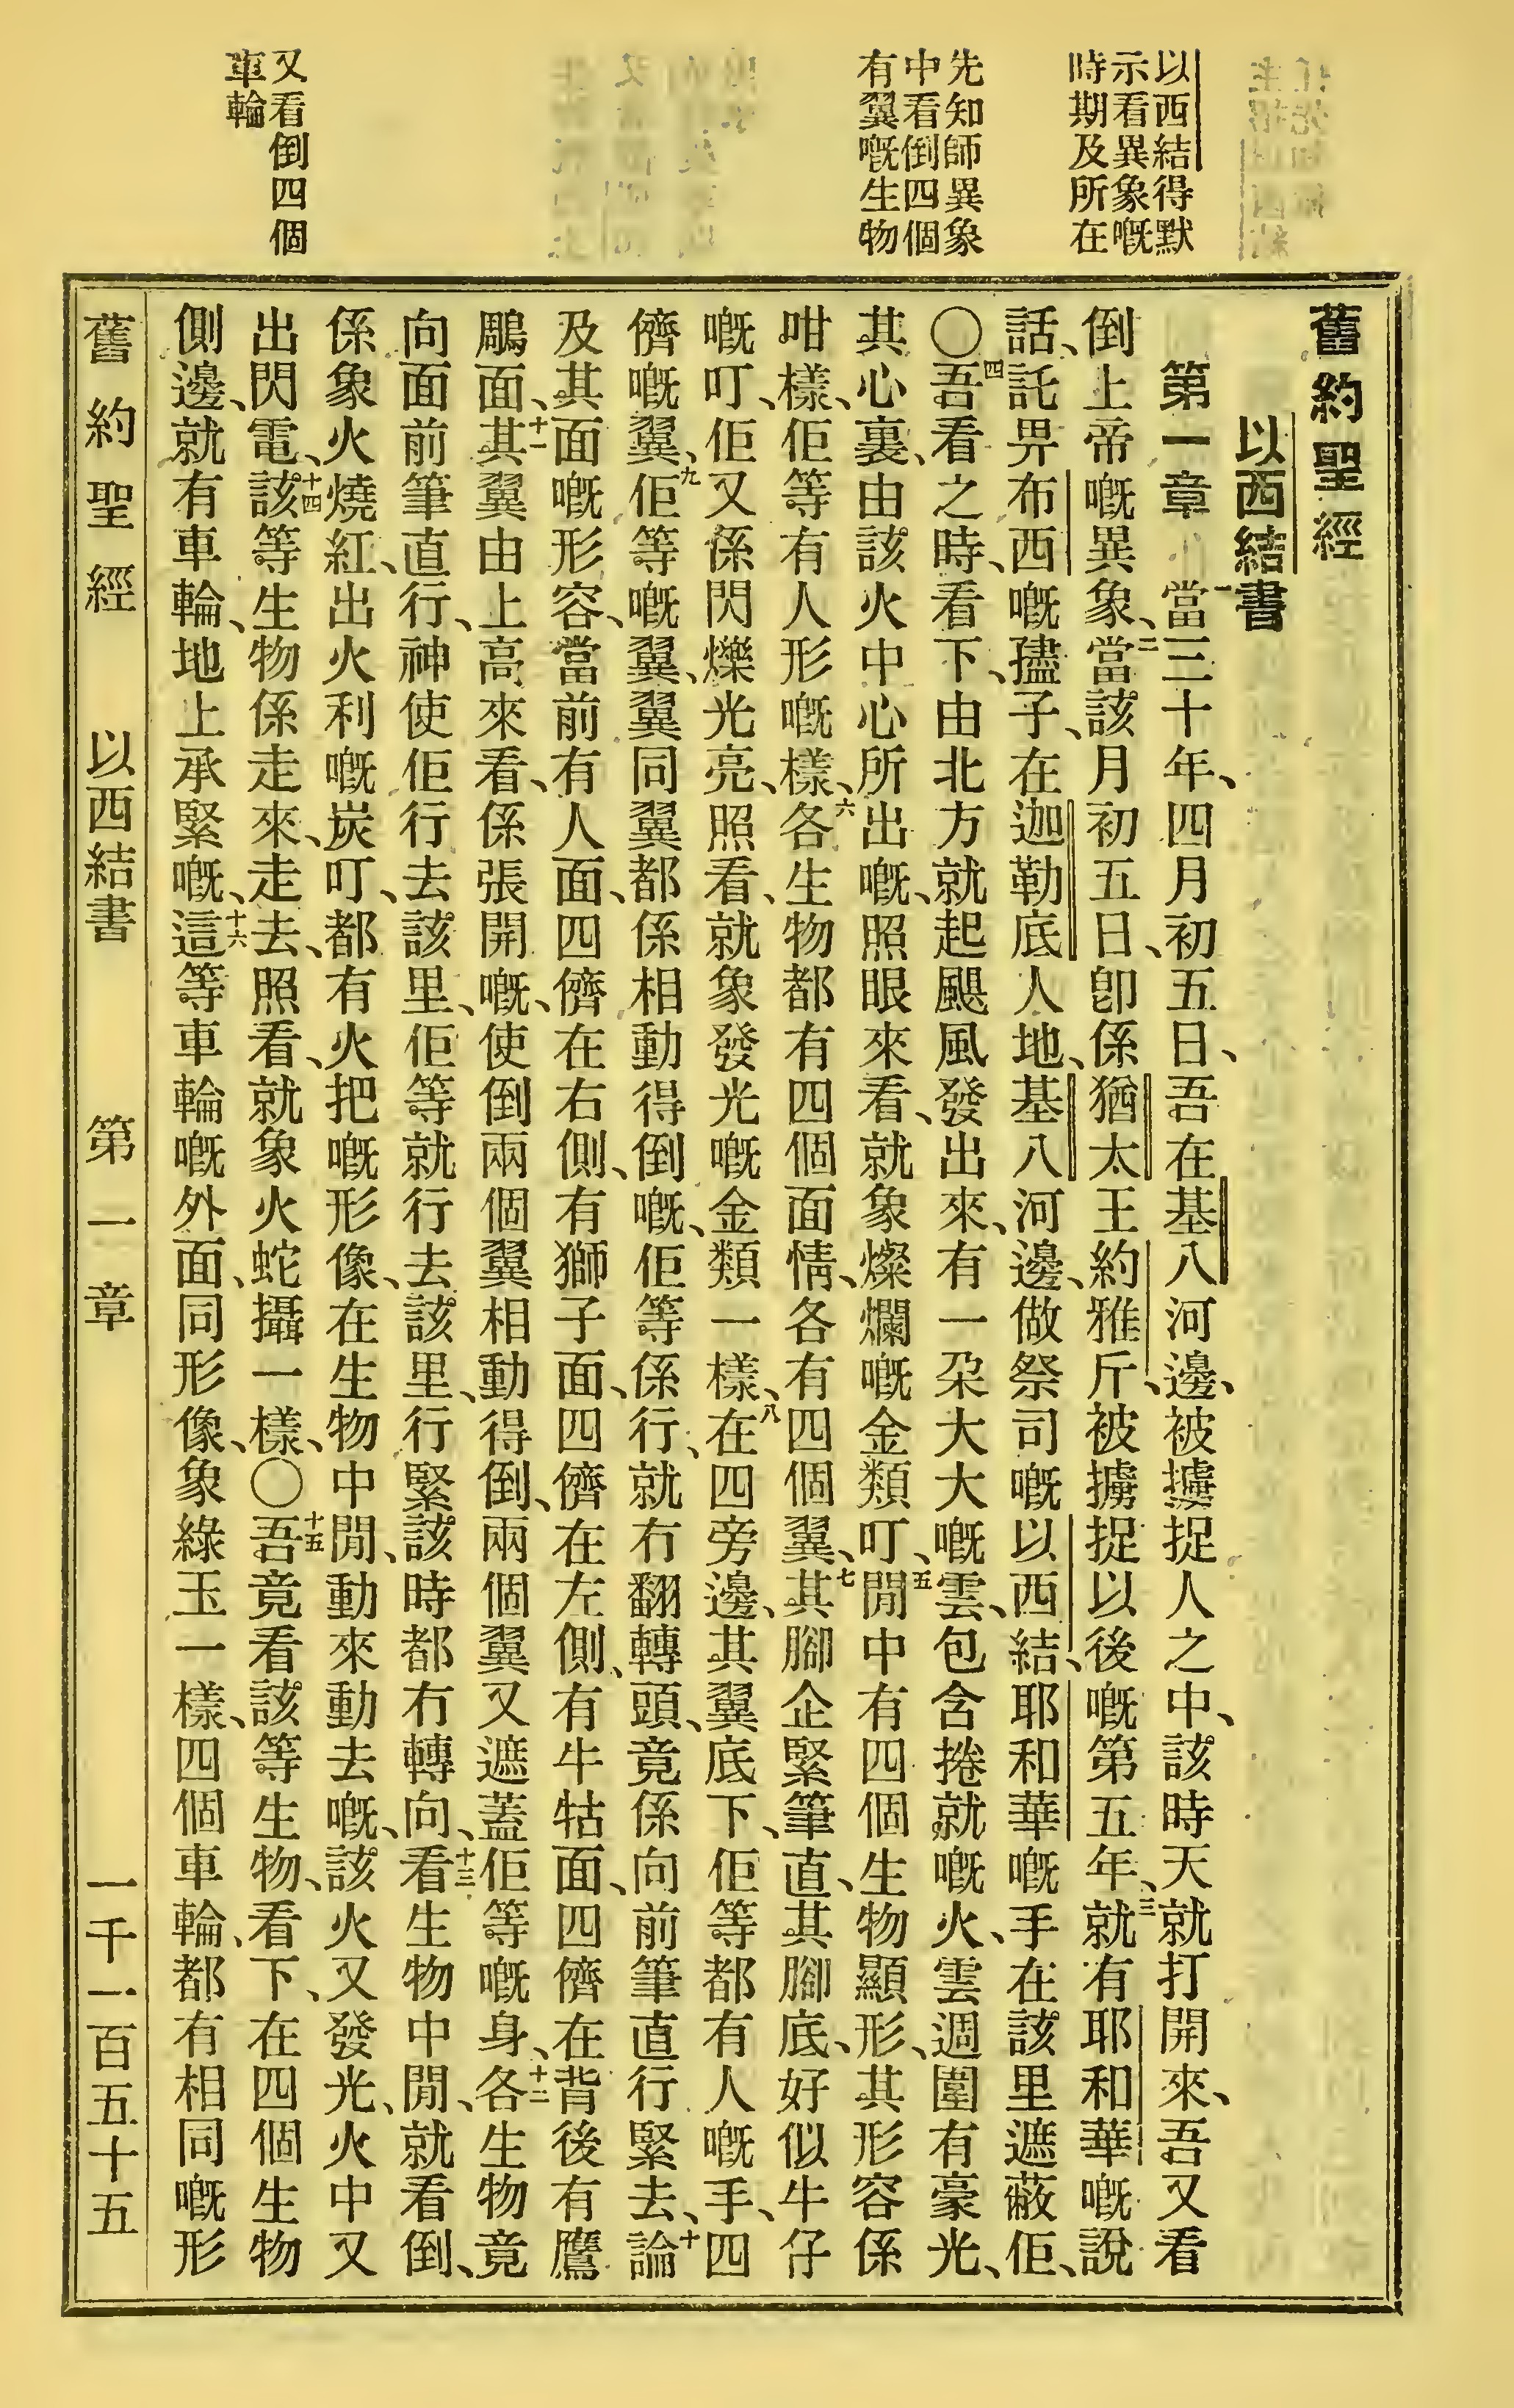 以西結得默
示看異象嘅
時期及所在
先知師異象
中看倒四個
有翼嘅生物
又看倒四個
車輪
舊約聖經
以西結書
第一章 一當三十年、四月初五日、吾在基八河邊、被擄捉人之中、該時天就打開來、吾又看
倒上帝嘅異象、二當該月初五日、卽係猶太王約雅斤、被擄捉以後嘅第五年、三就有耶和華嘅說
話、託畀布西嘅孻子、在迦勒底人地、基八河邊、做祭司嘅以西結、耶和華嘅手在該里遮蔽佢、
〇四吾看之時、看下、由北方就起颶風發出來、有一朶大大嘅雲、包含捲就嘅火、雲週圍有豪光、
其心裏、由該火中心所出嘅、照眼來看、就象燦爛嘅金類叮、五閒中有四個生物顯形、其形容係
咁樣、佢等有人形嘅樣、六各生物都有四個面情、各有四個翼、七其腳企緊筆直、其腳底、好似牛仔
嘅叮、佢又係閃爍光亮、照看、就象發光嘅金類一樣、八在四旁邊、其翼底下、佢等都有人嘅手、四
儕嘅翼、九佢等嘅翼、翼同翼都係相動得倒嘅、佢等係行、就冇翻轉頭、竟係向前筆直行緊去、十論
及其面嘅形容、當前有人面、四儕在右側、有獅子面、四儕在左側、有牛牯面、四儕在背後有鷹
鵰面、十一其翼由上高來看、係張開嘅、使倒兩個翼相動得倒、兩個翼又遮蓋佢等嘅身、十二各生物竟
向面前筆直行、神使佢行去該里、佢等就行去該里、行緊該時都冇轉向、十三看生物中閒、就看倒、
係象火燒紅、出火利嘅炭叮、都有火把嘅形像、在生物中閒、動來動去嘅、該火又發光、火中又
出閃電、十四該等生物係走來、走去、照看、就象火蛇攝一樣、〇十五吾竟看該等生物、看下、在四個生物
側邊、就有車輪、地上承緊嘅、十六這等車輪嘅外面、同形像、象綠玉一樣、四個車輪、都有相同嘅形
舊約聖經 以西結書 第一章 一千一百五十五